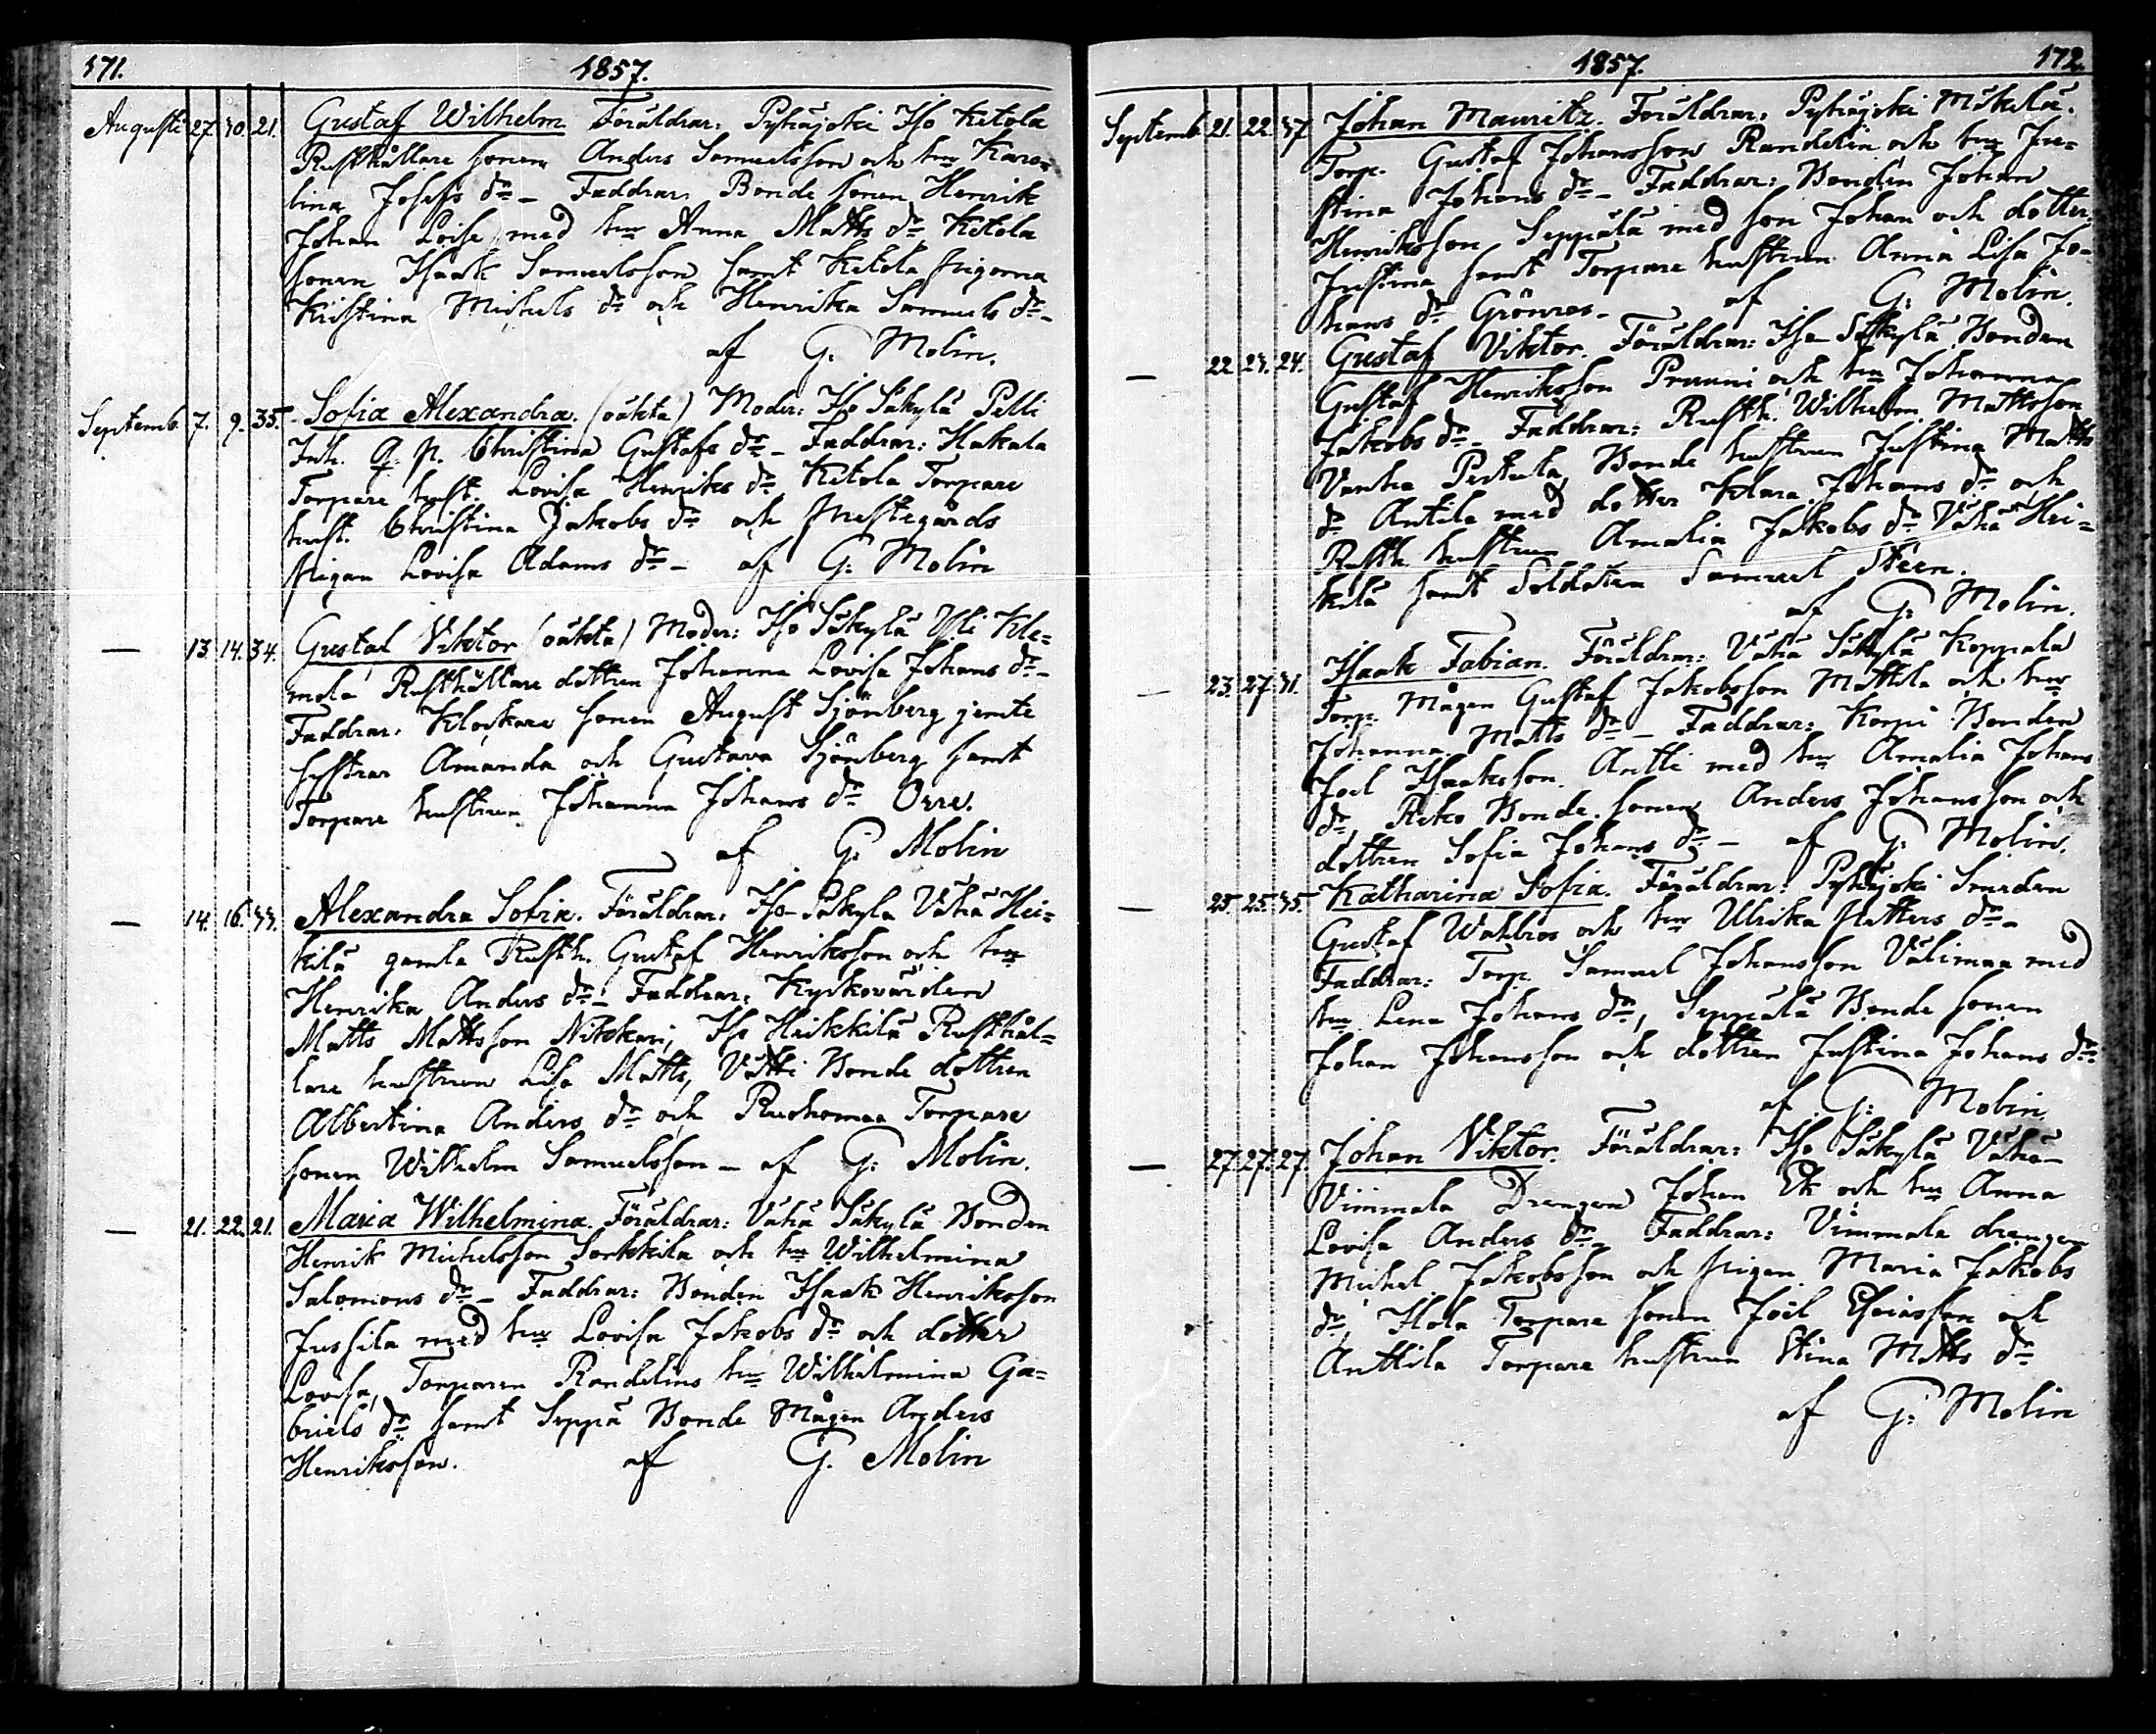 171. 1857.
Augusti 27. 30. 21. Gustaf Wilhelm Föräldrar: Pyhäjoki Iso Ketola
Rusthållare sonen Anders Samuelsson och hu Karo-
lina Josefs dr – Faddrar: Bonde sonen Henrik
Johan med hu Anna Matts dr Ketola
sonen Isaak Samuelsson samt Ketola pigorna
Kristina Michels dr och Henrika Samuels dr –
af G. Molin.
Septemb. 7. 9. 35. Sofia Alexandra. (oäkta) Moder: Iso Säkylä Pelli
Inh. Q. p. Christina Gustafs dr – Faddrar: Hakala
Torpare hust. Lovisa Henriks dr Ketola Torpare
hust. Christina Jakobs dr och Prestegårds
pigan Lovisa Adams dr – af G. Molin
— 13. 14. 34. Gustaf Viktor (oäkta) Moder: Iso Säkylä Yli Kle-
mola Rusthållare dottren Johanna Lovisa Johans dr –
Faddrar: Klockare sonen August Sjönberg jemte
systrar Amanda och Gustava Sjönberg samt
Torpare hustrun Johanna Johans dr Orre.
af G. Molin
— 14. 16. 44. Alexandra Sofia. Föräldrar: Iso Säkylä Vähä Hei-
kilä gamla Rusth. Gustaf Henriksson och hu
Henrika Anders dr – Faddrar: Kyrkovärden
Matts Mattsson Nikkari, Iso Heikkilä Rusthål-
lare hustrun Lisa Matts, Vätti Bonde dottren
Albertina Anders dr och Ruohomaa Torpare
sonen Wilhelm Samuelsson – af G. Molin.
— 21. 22. 21. Maria Wilhelmina. Föräldrar: Vähä Säkylä Bonden
Henrik Michelsson Sorkkila och hu Wilhelmina
Salomons dr – Faddrar: Bonden Isaak Henriksson
Jussila med hu Lovisa Jakobs dr och dotter
Lovisa, Torparen Randelins hu Wilhelmina Ga-
briels dr samt Seppä Bonde Mågen Anders
Henriksson. af G. Molin
1857. 172.
Septemb. 21. 22. 37 Johan Mauritz. Föräldrar: Pyhäjoki Mikilä
Torp. Gustaf Johansson Randelin och hu Ju-
stina Johans dr – Faddrar: Bonden Johan
Henriksson Seppälä med son Johan och dotter
Justina samt Torpare hustrun Anna Lisa Jo-
hans dr Grönroos – af G. Molin.
— 22. 24. 24. Gustaf Viktor. Föräldrar: Iso Säkylä Bonden
Gustaf Henriksson Pruuni och hu Johanna
Jakobs dr – Faddrar: Rusth. Wilhelm Mattsson
Vanha Perkula, Bonde hustrun Justina Matts
dr Antila med dotter Klara Johans dr och
Rusth. hustrun Amalia Jakobs dr Vähä Hei-
kilä samt Soldaten Samuel Steen.
af G. Molin.
— 23. 27. 41. Isaak Fabian. Föräldrar: Vähä Säkylä Koppala
Torp. Mågen Gustaf Jakobsson Mattila och hu
Johanna Matts dr – Faddrar: Korpi Bonden
Joel Isaksson Antti med hu Amalia Johans
dr, Reko Bonde sonen Anders Johansson och
dottren Sofia Johans dr – af G. Molin.
— 25. 25. 35. Katharina Sofia. Föräldrar: Pyhäjoki Smeden
Gustaf Wahlros och hu Ulrika dr –
Faddrar: Torp. Samuel Johansson Välimaa med
hu Lena Johans dr, Seppälä Bonde sonen
Johan Johansson och dottren Justina Johans dr
af G. Molin
— 27. 27. 27. Johan Viktor. Föräldrar: Iso Säkylä Vähä-
Vimmala Drengen Johan Ek och hu Anna
Lovisa Anders dr – Faddrar: Vimmala drengen
Michel Jakobsson och pigan Maria Jakobs
dr, Torpare sonen Joel Esaiasson och
Anttila Torpare hustrun Stina Matts dr
af G. Molin